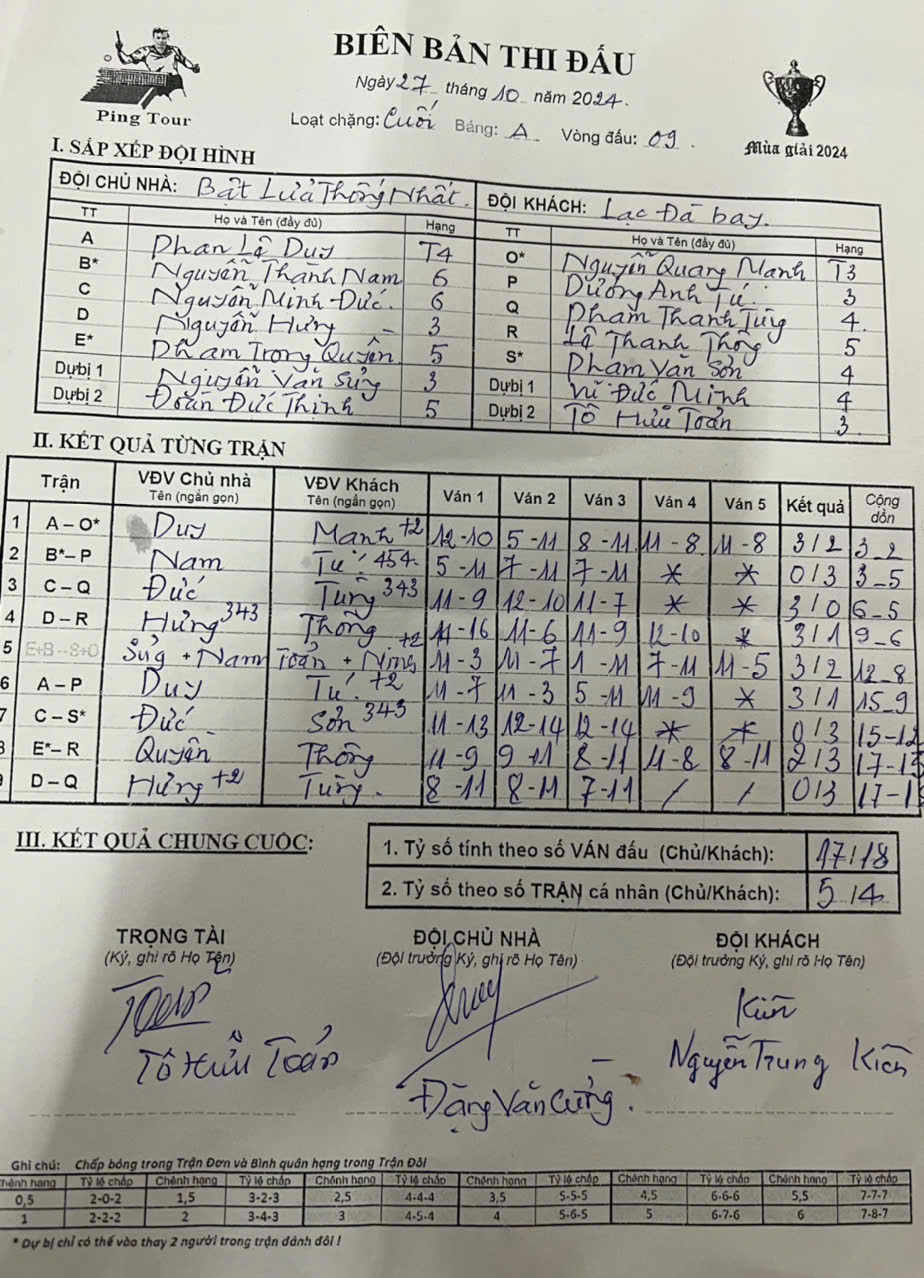 BIÊN BẢN THI ĐẤU
Ngày 27 tháng 10 năm 2024.
Ping Tour
Loạt chặng: Cuối Bảng: A Vòng đấu: 09.
Mùa giải 2024
I. SẮP XẾP ĐỘI HÌNH
ĐỘI CHỦ NHÀ: Bật Lửa Thống Nhất. ĐỘI KHÁCH: Lạc Đà bay.
TT Họ và Tên (đầy đủ) Hạng TT Họ và Tên (đầy đủ) Hạng
A Phan Lê Duy T4 O* Nguyễn Quang Mạnh T3
B* Nguyễn Thanh Nam 6 P Dương Anh Tú 3
C Nguyễn Minh Đức. 6 Q Phạm Thanh Tùng 4.
D Nguyễn Hưng 3 R Lê Thanh Thông 5
E* Phạm Trọng Quyền 5 S* Phạm Văn Sơn 4
Dựbị 1 Nguyễn Văn Sửg 3 Dựbị 1 Vũ Đức Minh 4
Dựbị 2 Đoàn Đức Thịnh 5 Dựbị 2 Tô Hữu Toản 3
II. KẾT QUẢ TỪNG TRẬN
Trận VĐV Chủ nhà Tên (ngắn gọn) VĐV Khách Tên (ngắn gọn) Ván 1 Ván 2 Ván 3 Ván 4 Ván 5 Kết quả Cộng dồn
1 A – O* Duy Mạnh +2 12-10 5-11 8-11 11-8 11-8 3/2 3_2
2 B*– P Nam Tú 454 5-11 7-11 7-11 * * 0/3 3_5
3 C – Q Đức Tùng 343 11-9 12-10 11-7 * * 3/0 6_5
4 D – R Hưng 343 Thông 14-16 11-6 11-9 12-10 * 3/1 9_6
5 E+B – S+O Sủg + Nam Toản + Ming +2 11-3 11-7 1-11 7-11 11-5 3/2 12_8
6 A – P Duy Tú. +2 11-7 11-3 5-11 11-9 * 3/1 15_9
7 C – S* Đức Sơn 343 11-13 12-14 12-14 * * 0/3 15-12
E*– R Quyền Thông 11-9 9-11 8-11 11-8 8-11 2/3 17-15
D – Q Hưng +2 Tùng. 8-11 8-11 7-11 / / 0/3 17-1
III. KẾT QUẢ CHUNG CUỘC:
1. Tỷ số tính theo số VÁN đấu (Chủ/Khách): 17/18
2. Tỷ số theo số TRẬN cá nhân (Chủ/Khách): 5/4
TRỌNG TÀI ĐỘI CHỦ NHÀ ĐỘI KHÁCH
(Ký, ghi rõ Họ Tên) (Đội trưởng Ký, ghi rõ Họ Tên) (Đội trưởng Ký, ghi rõ Họ Tên)
Toản Kiên
Tô Hữu Toản Đặng Văn Cường. Nguyễn Trung Kiên
Ghi chú: Chấp bóng trong Trận Đơn và Bình quân hạng trong Trận Đôi
Chênh hạng Tỷ lệ chấp Chênh hạng Tỷ lệ chấp Chênh hạng Tỷ lệ chấp Chênh hạng Tỷ lệ chấp Chênh hạng Tỷ lệ chấp Chênh hạng Tỷ lệ chấp
0,5 2-0-2 1,5 3-2-3 2,5 4-4-4 3,5 5-5-5 4,5 6-6-6 5,5 7-7-7
1 2-2-2 2 3-4-3 3 4-5-4 4 5-6-5 5 6-7-6 6 7-8-7
* Dự bị chỉ có thể vào thay 2 người trong trận đánh đôi !